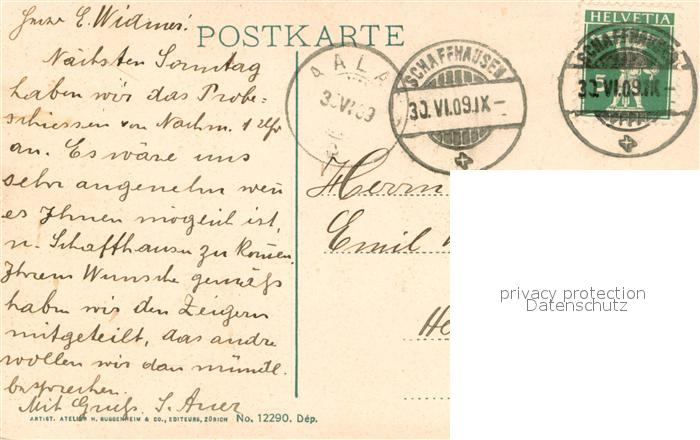 Herrn E. Widmer!
POSTKARTE
HELVETIA
5
Nächsten Sonntag
haben wir das Probe-
schiessen von Nachm. 1 Uhr
an. Es wäre uns
sehr angenehm wen
es Ihnen möglich ist,
n. Schaffhausen zu komen.
Ihrem Wunsche gemäss
haben wir den Zeigern
mitgeteilt, das andre
wollen wir dan mündl.
besprechen.
Mit Gruss. S. Auer
AALA
30.VI.09
SCHAFFHAUSEN
30.VI.09.IX-
SCHAFFHAUSEN
30.VI.09.IX-
Herrn
Emil
He
privacy protection
Datenschutz
ARTIST. ATELIER H. GUGGENHEIM & CO., EDITEURS, ZÜRICH No. 12290. Dép.